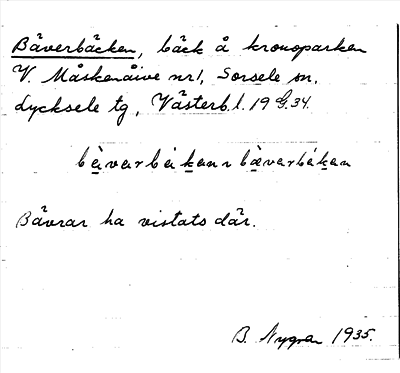 Bäverbäcken, bäck å kronoparken
V. Måskenåive nr1, Sorsele sn,
Lycksele tg, Västerb. l. 19 G. 34.
bävarbäkan bävarbäkan
Bävrar ha vistats där.
B. Nygren 1935.